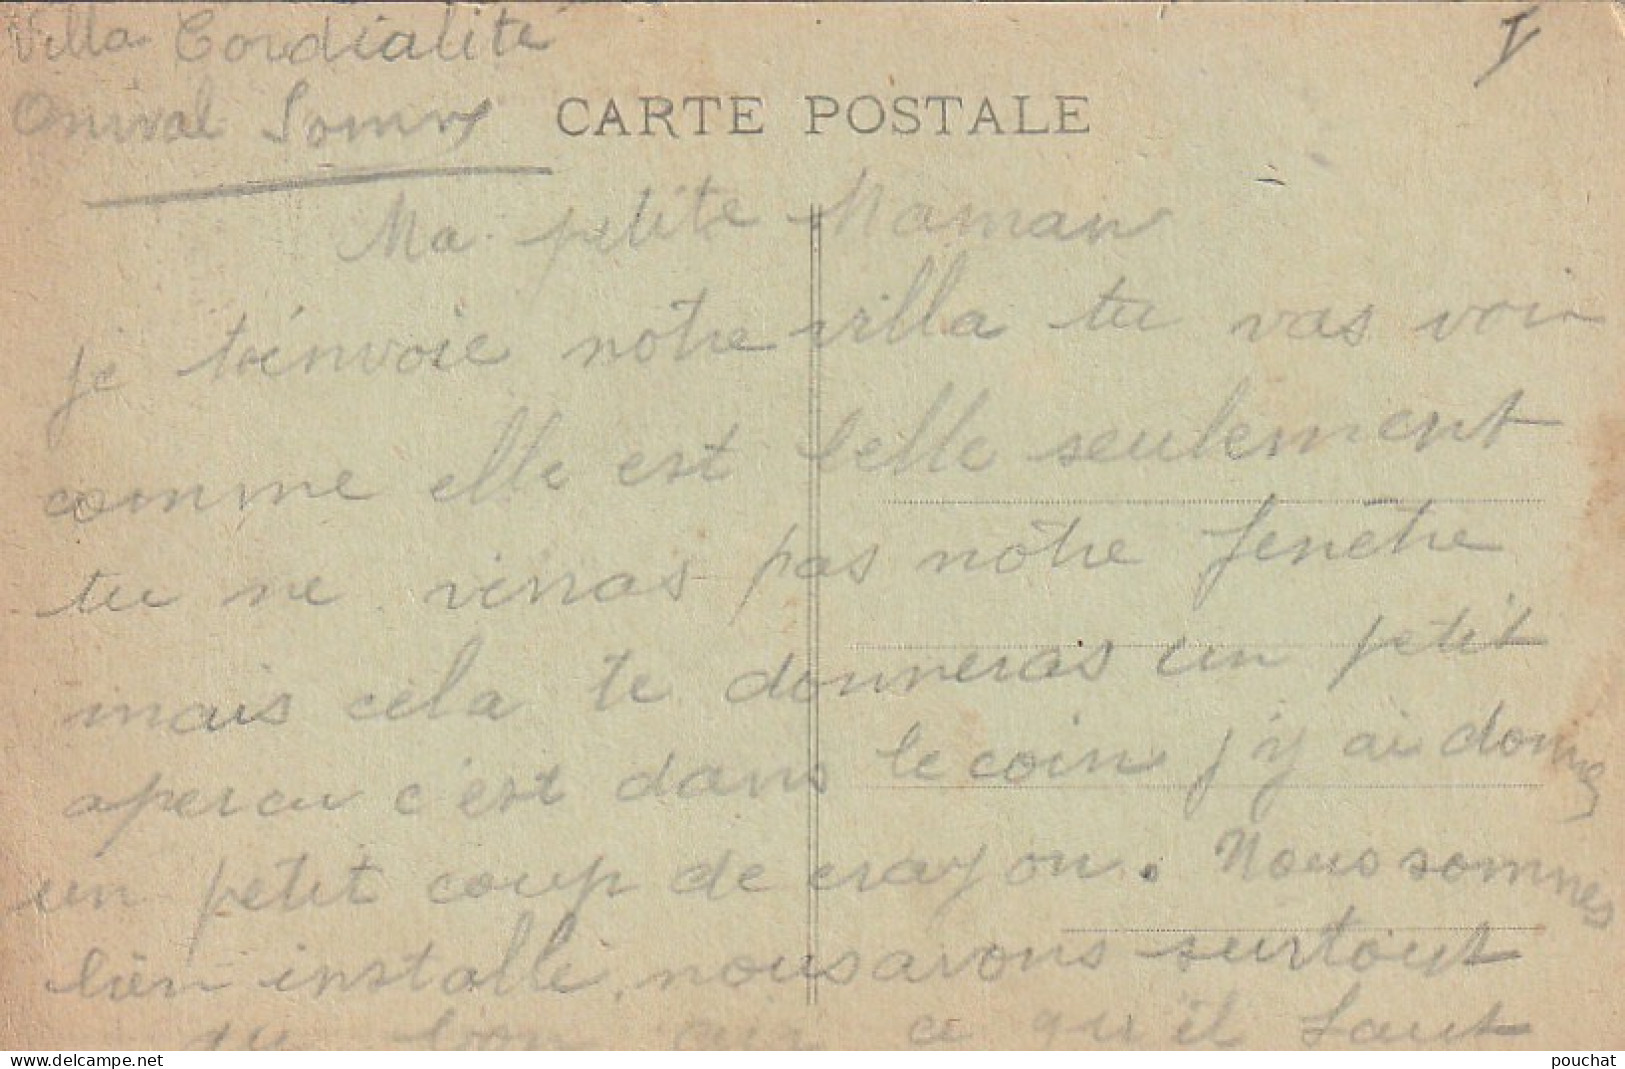 Villa Cordialité
Onival Somme
I
CARTE POSTALE
Ma petite Maman
je t'envoie notre villa tu vas voir
comme elle est belle seulement
tu ne verras pas nôtre fenêtre
mais cela te donneras un petit
apercu c'est dans le coin j'y ai donné
un petit coup de crayon. Nous sommes
bien installe, nous avons surtout
du bon air ce qu'il faut
www.delcampe.net
pouchat